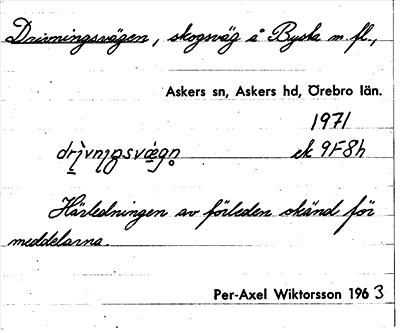 Drivningsvägen, skogsväg å Byska m. fl.,
Askers sn, Askers hd, Örebro län.
1971
drìvnıŋsvæ̀gn̥ ek 9F8h
Härledningen av förleden okänd för
meddelarna.
Per-Axel Wiktorsson 1963